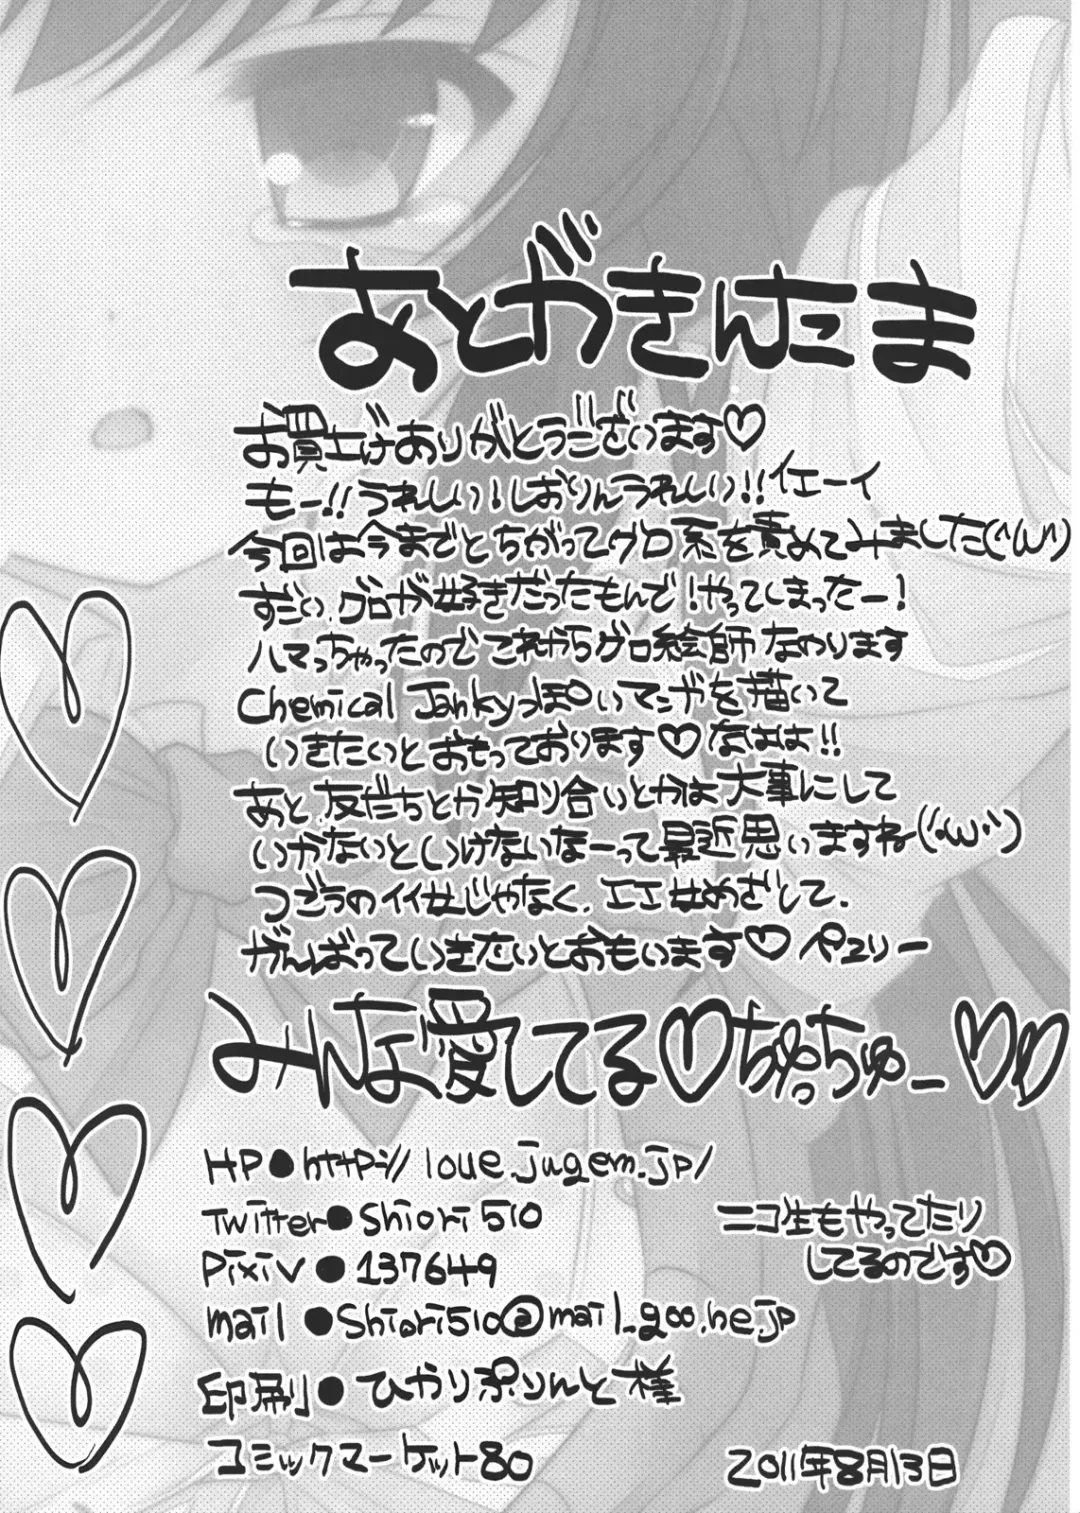 あとがきんたま
お買上げありがとうございます♡
もー!!うれしい!しおりんうれしい!!イエーイ
今回は今までとちがってグロ系を責めてみました(´・ω・`)
すごい、グロが好きだったもんで!やってしまったー!
ハマっちゃったのでこれからグロ絵師なのります
Chemical Jankyっぽいマンガを描いて
いきたいとおもっております♡なはは!!
あと、友だちとか知り合いとかは大事にして
いかないといけないなーって最近思いますね(´・ω・`)
つごうのイイ女じゃなく、エエ女めざして、
がんばっていきたいとおもいます♡ペュリー
みんな愛してる♡ちゅっちゅー♡♡
HP●http://loue.jugem.jp/
Twitter●Shiori510
Pixiv●137649
mail●Shiori510@mail.goo.ne.jp
ニコ生もやってたり
してるのです♡
印刷●ひかりぷりんと様
コミックマーケット80
2011年8月13日